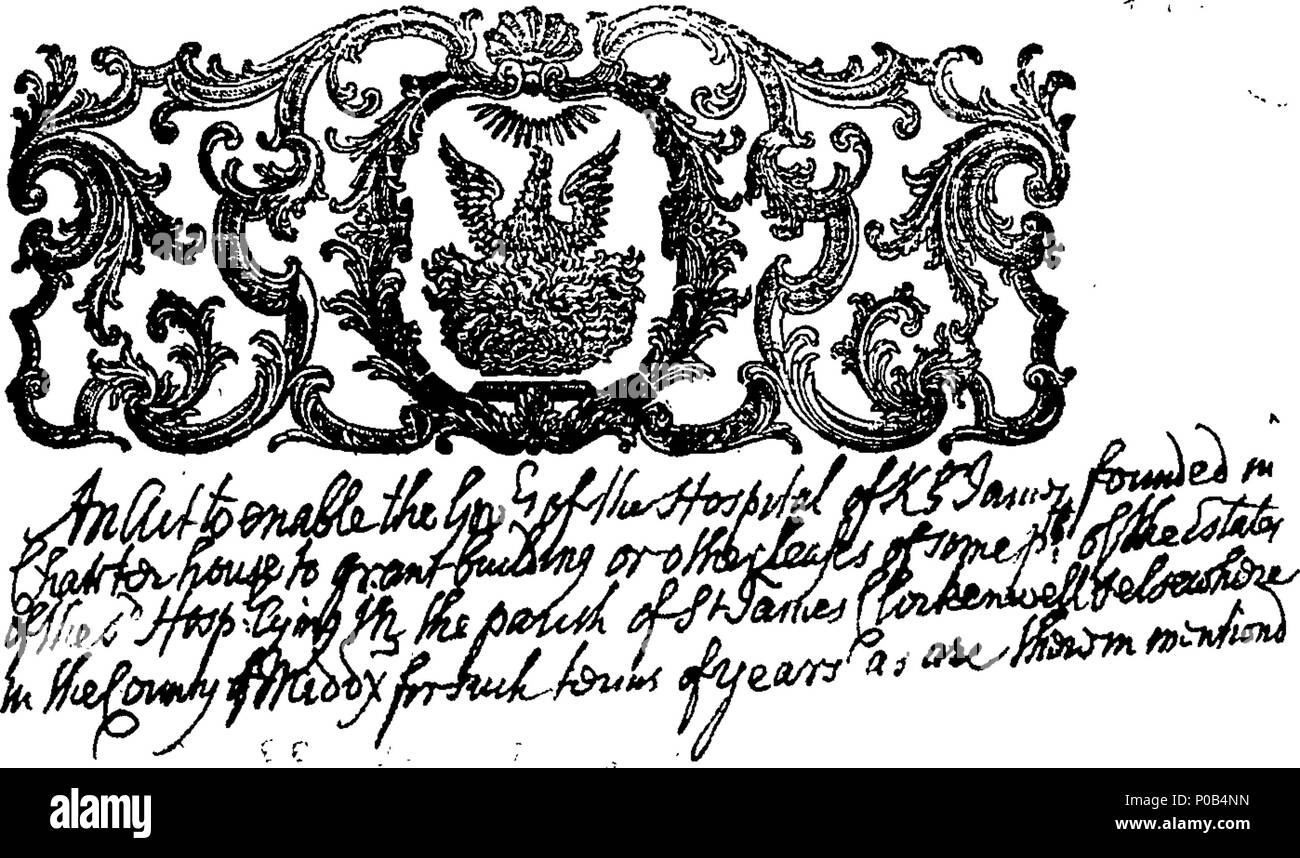 An Act to enable the Govrs of the Hospital of Kg James founded in
Charterhouse to grant building or other Leases of some pts of the Estates
of the sd Hosp: Lying in the parish of St James Clerkenwell & elsewhere
in the County of Middx for such terms of years as are therein mentiond
alamy
Image ID: P0B4NN
www.alamy.com